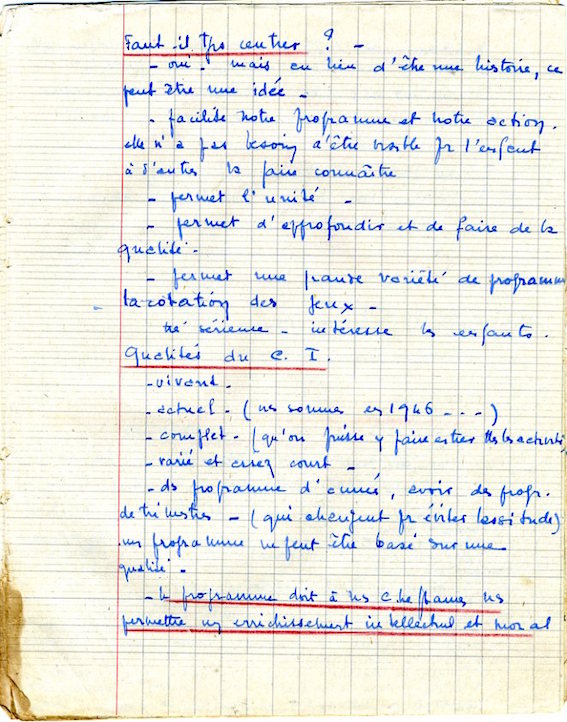 Faut-il tjrs centrer ? -
- oui - mais au lieu d'être une histoire, ce
peut être une idée -
- facilite notre programme et notre action.
elle n'a pas besoin d'être visible pr l'enfant
à d'autres la faire connaître
- permet l'unité -
- permet d'approfondir et de faire de la
qualité -
- permet une grande variété de programme
la cotation des jeux -
très sérieuse - intéresse les enfants.
Qualités du C. I.
- vivant -
- actuel - (ns sommes en 1946 - - - )
- complet - (qu'on puisse y faire entrer ttes les activités
- varié et assez court -
- ds programme d'année, avoir des progr.
de trimestres - (qui changent pr éviter lassitude)
un programme ne peut être basé sur une
qualité -
- le programme doit à ns cheftaines ns
permettre un enrichissement intellectuel et moral